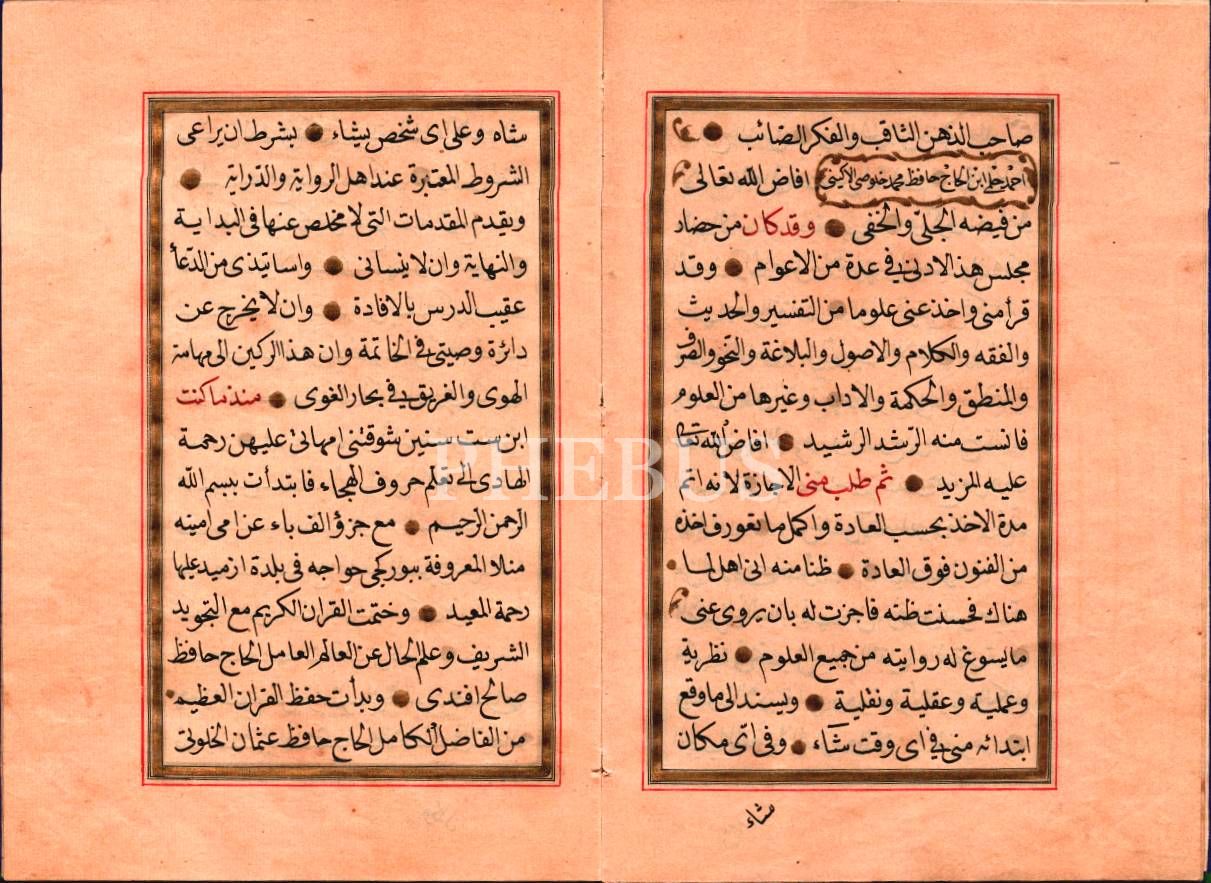 صاحب الذهن الثاقب والفكر الصائب
احمد حلمى ابن الحاج حافظ محمد خلوصى الاكينى افاض الله تعالى
من فيضه الجلى والخفى وقد كان من حضار
مجلس هذا الادنى فى عدة من الاعوام وقد
قرأ منى واخذ عنى علوما من التفسير والحديث
والفقه والكلام والاصول والبلاغة والنحو والصرف
والمنطق والحكمة والاداب وغيرها من العلوم
فانست منه الرشد الرشيد افاض الله تعالى
عليه المزيد ثم طلب منى الاجازة لانه اتم
مدة الاخذ بحسب العادة واكمل ما تعورف اخذه
من الفنون فوق العادة ظنا منه انى اهل لما
هناك فحسنت ظنه فاجزت له بان يروى عنى
ما يسوغ له روايته من جميع العلوم نظرية
وعملية وعقلية ونقلية ويسند الى ما وقع
ابتدائه منى فى اى وقت شاء وفى اى مكان
شاء
شاء وعلى اى شخص يشاء بشرط ان يراعى
الشروط المعتبرة عند اهل الرواية والدراية
ويقدم المقدمات التى لا مخلص عنها فى البداية
والنهاية وان لا ينسانى واساتيذى من الدعأ
عقيب الدرس بالافادة وان لا يخرج عن
دائرة وصيتى فى الخاتمة وان هذا الركين الى مهامة
الهوى والغريق فى بحار الغوى منذ ما كنت
ابن ست سنين شوقتنى امهاتى عليهن رحمة
الهادى الى تعلم حروف الهجاء فابتدأت ببسم الله
الرحمن الرحيم مع جزؤ الف باء عن امى امينه
منلا المعروفة ببوركجى خواجه فى بلدة ازميد عليها
رحمة المعيد وختمت القران الكريم مع التجويد
الشريف وعلم الحال عن العالم العامل الحاج حافظ
صالح افندى وبدأت حفظ القران العظيم
من الفاضل الكامل الحاج حافظ عثمان الخلوتى
PHEBUS